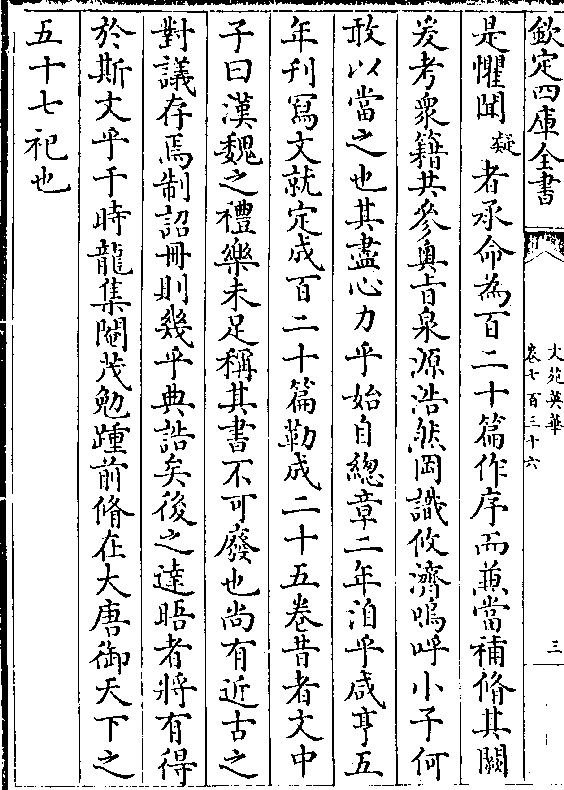 欽定四庫全書
文苑英華
卷七百三十六
三
是懼聞疑者承命為百二十篇作序而兼當補脩其闕
爰考衆籍共參奧旨泉源浩然罔識攸濟嗚呼小子何
敢以當之也其盡心力乎始自總章二年洎乎咸亨五
年刊寫文就定成百二十篇勒成二十五卷昔者文中
子曰漢魏之禮樂未足稱其書不可廢也尚有近古之
對議存焉制詔冊則幾乎典誥矣後之達晤者將有得
於斯文乎于時龍集閹茂勉踵前脩在大唐御天下之
五十七祀也